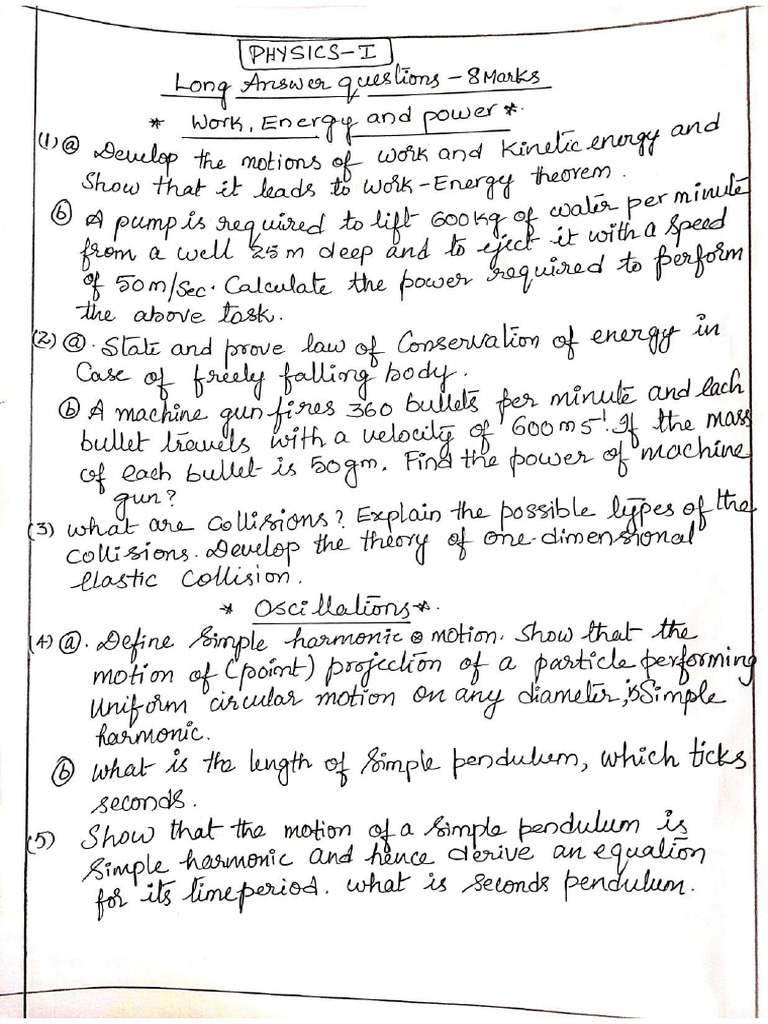 PHYSICS-I
Long Answer questions - 8 Marks
* Work, Energy and power *.
(1) ⓐ Develop the motions of work and Kinetic energy and
Show that it leads to work-Energy theorem.
ⓑ A pump is required to lift 600kg of water per minute
from a well 25m deep and to eject it with a speed
of 50m/sec. Calculate the power required to perform
the above task.
(2) ⓐ. State and prove law of Conservation of energy in
Case of freely falling body.
ⓑ A machine gun fires 360 bullets per minute and each
bullet travels with a velocity of 600ms⁻¹. If the mass
of each bullet is 50gm. Find the power of machine
gun?
(3) What are collisions? Explain the possible types of the
collisions. Develop the theory of one-dimensional
Elastic collision.
* Oscillations *.
(4) ⓐ. Define Simple harmonic motion. Show that the
motion of (point) projection of a particle performing
Uniform circular motion on any diameter, is Simple
harmonic.
ⓑ What is the length of Simple pendulum, which ticks
seconds.
(5) Show that the motion of a simple pendulum is
Simple harmonic and hence derive an equation
for its timeperiod. What is seconds pendulum.